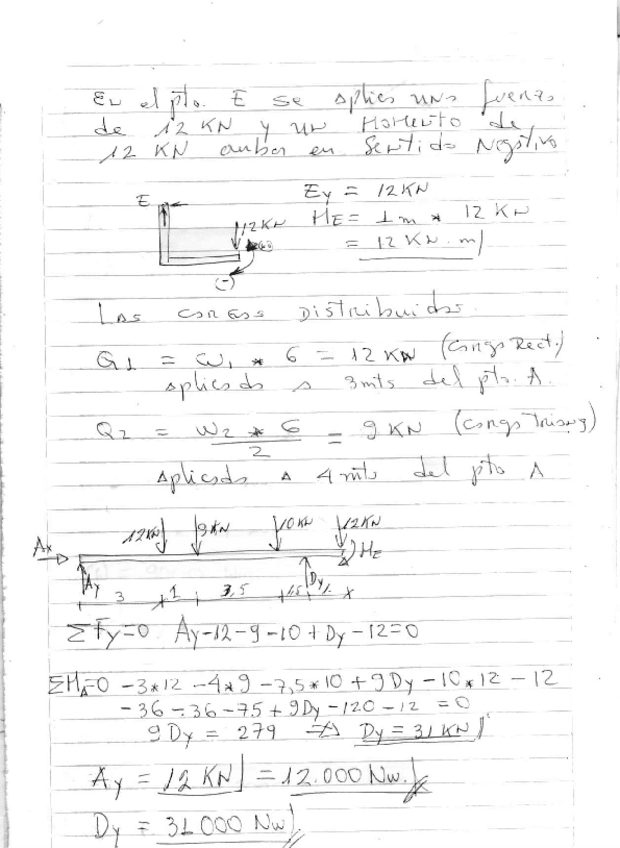 En el pto. E se aplica una fuerza
de 12 KN y un Momento de
12 KN ambos en Sentido Negativo
E
12KN
(-)
Ey = 12KN
ME = 1m * 12 KN
= 12 KN.m
Las cargas Distribuidas.
Q1 = W1 * 6 = 12 KN (Carga Rect.)
aplicado a 3mts del pto. A.
Q2 = W2 * 6 / 2 = 9 KN (Carga Triang)
Aplicada a 4 mts del pto A
12KN 9KN 10KN 12KN
Ax ME
Ay Dy
3 1 3,5 1.5 1
ΣFy=0 Ay-12-9-10+Dy-12=0
ΣMA=0 -3*12 -4*9 -7,5*10 +9Dy -10*12 -12
-36 -36 -75 +9Dy -120 -12 =0
9Dy = 279 ⇒ Dy = 31 KN
Ay = 12 KN = 12.000 Nw.
Dy = 31000 Nw